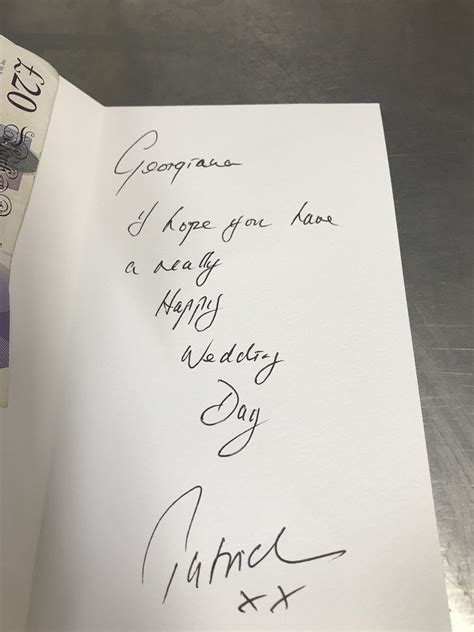 £20
Georgiana
I hope you have
a really
Happy
Wedding
Day
Patrick
xx